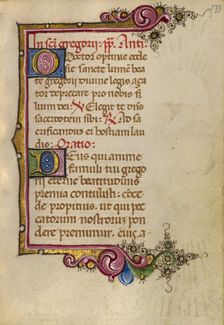 In sci gregorij. pp. Anti.
Doctor optime eccle
sie sancte lumē bea
te gregori diuine legis a
tor deprecare pro nobis fi
lium dei. Elegit te dn̄s
sacerdotem sibi. Ad sa
crificandum ei hostiam lau
dis. Oratio.
Deus qui anime
famuli tui grego
rij eterne beatitudinis
premia contulisti: cōce
de propitius. ut qui pec
catorum nostrorum pon
dere premimur. eius a